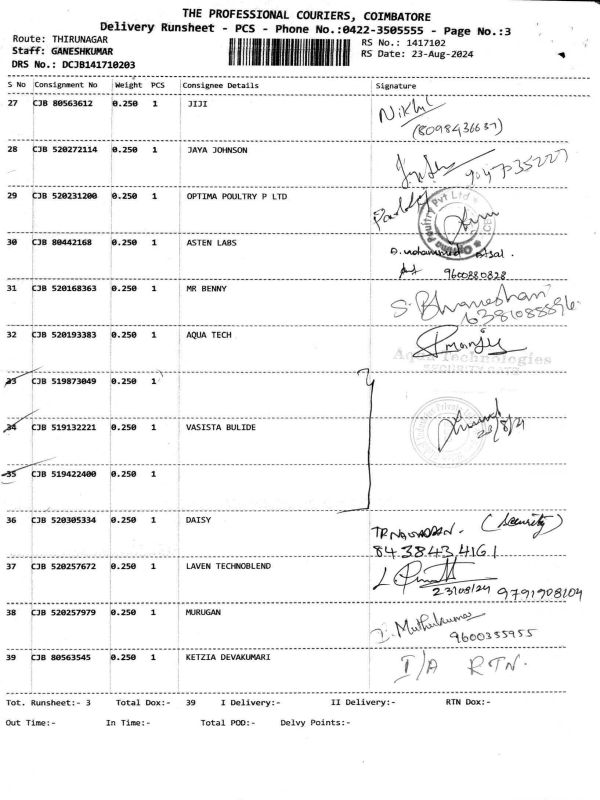 THE PROFESSIONAL COURIERS, COIMBATORE
Delivery Runsheet - PCS - Phone No.:0422-3505555 - Page No.:3
Route: THIRUNAGAR RS No.: 1417102
Staff: GANESHKUMAR RS Date: 23-Aug-2024
DRS No.: DCJB141710203
S No Consignment No Weight PCS Consignee Details Signature
27 CJB 80563612 0.250 1 JIJI Nikhil
(8098436637)
28 CJB 520272114 0.250 1 JAYA JOHNSON
29 CJB 520231200 0.250 1 OPTIMA POULTRY P LTD
30 CJB 80442168 0.250 1 ASTEN LABS A. mohammed Afsal.
9600880828
31 CJB 520168363 0.250 1 MR BENNY
32 CJB 520193383 0.250 1 AQUA TECH
Aqua Technologies
33 CJB 519873049 0.250 1
34 CJB 519132221 0.250 1 VASISTA BULIDE 23/8/24
35 CJB 519422400 0.250 1
36 CJB 520305334 0.250 1 DAISY (Security)
8438434161
37 CJB 520257672 0.250 1 LAVEN TECHNOBLEND
23/08/24 9791908104
38 CJB 520257979 0.250 1 MURUGAN Muthukumar
9600355955
39 CJB 80563545 0.250 1 KETZIA DEVAKUMARI I/A RTN.
Tot. Runsheet:- 3 Total Dox:- 39 I Delivery:- II Delivery:- RTN Dox:-
Out Time:- In Time:- Total POD:- Delvy Points:-